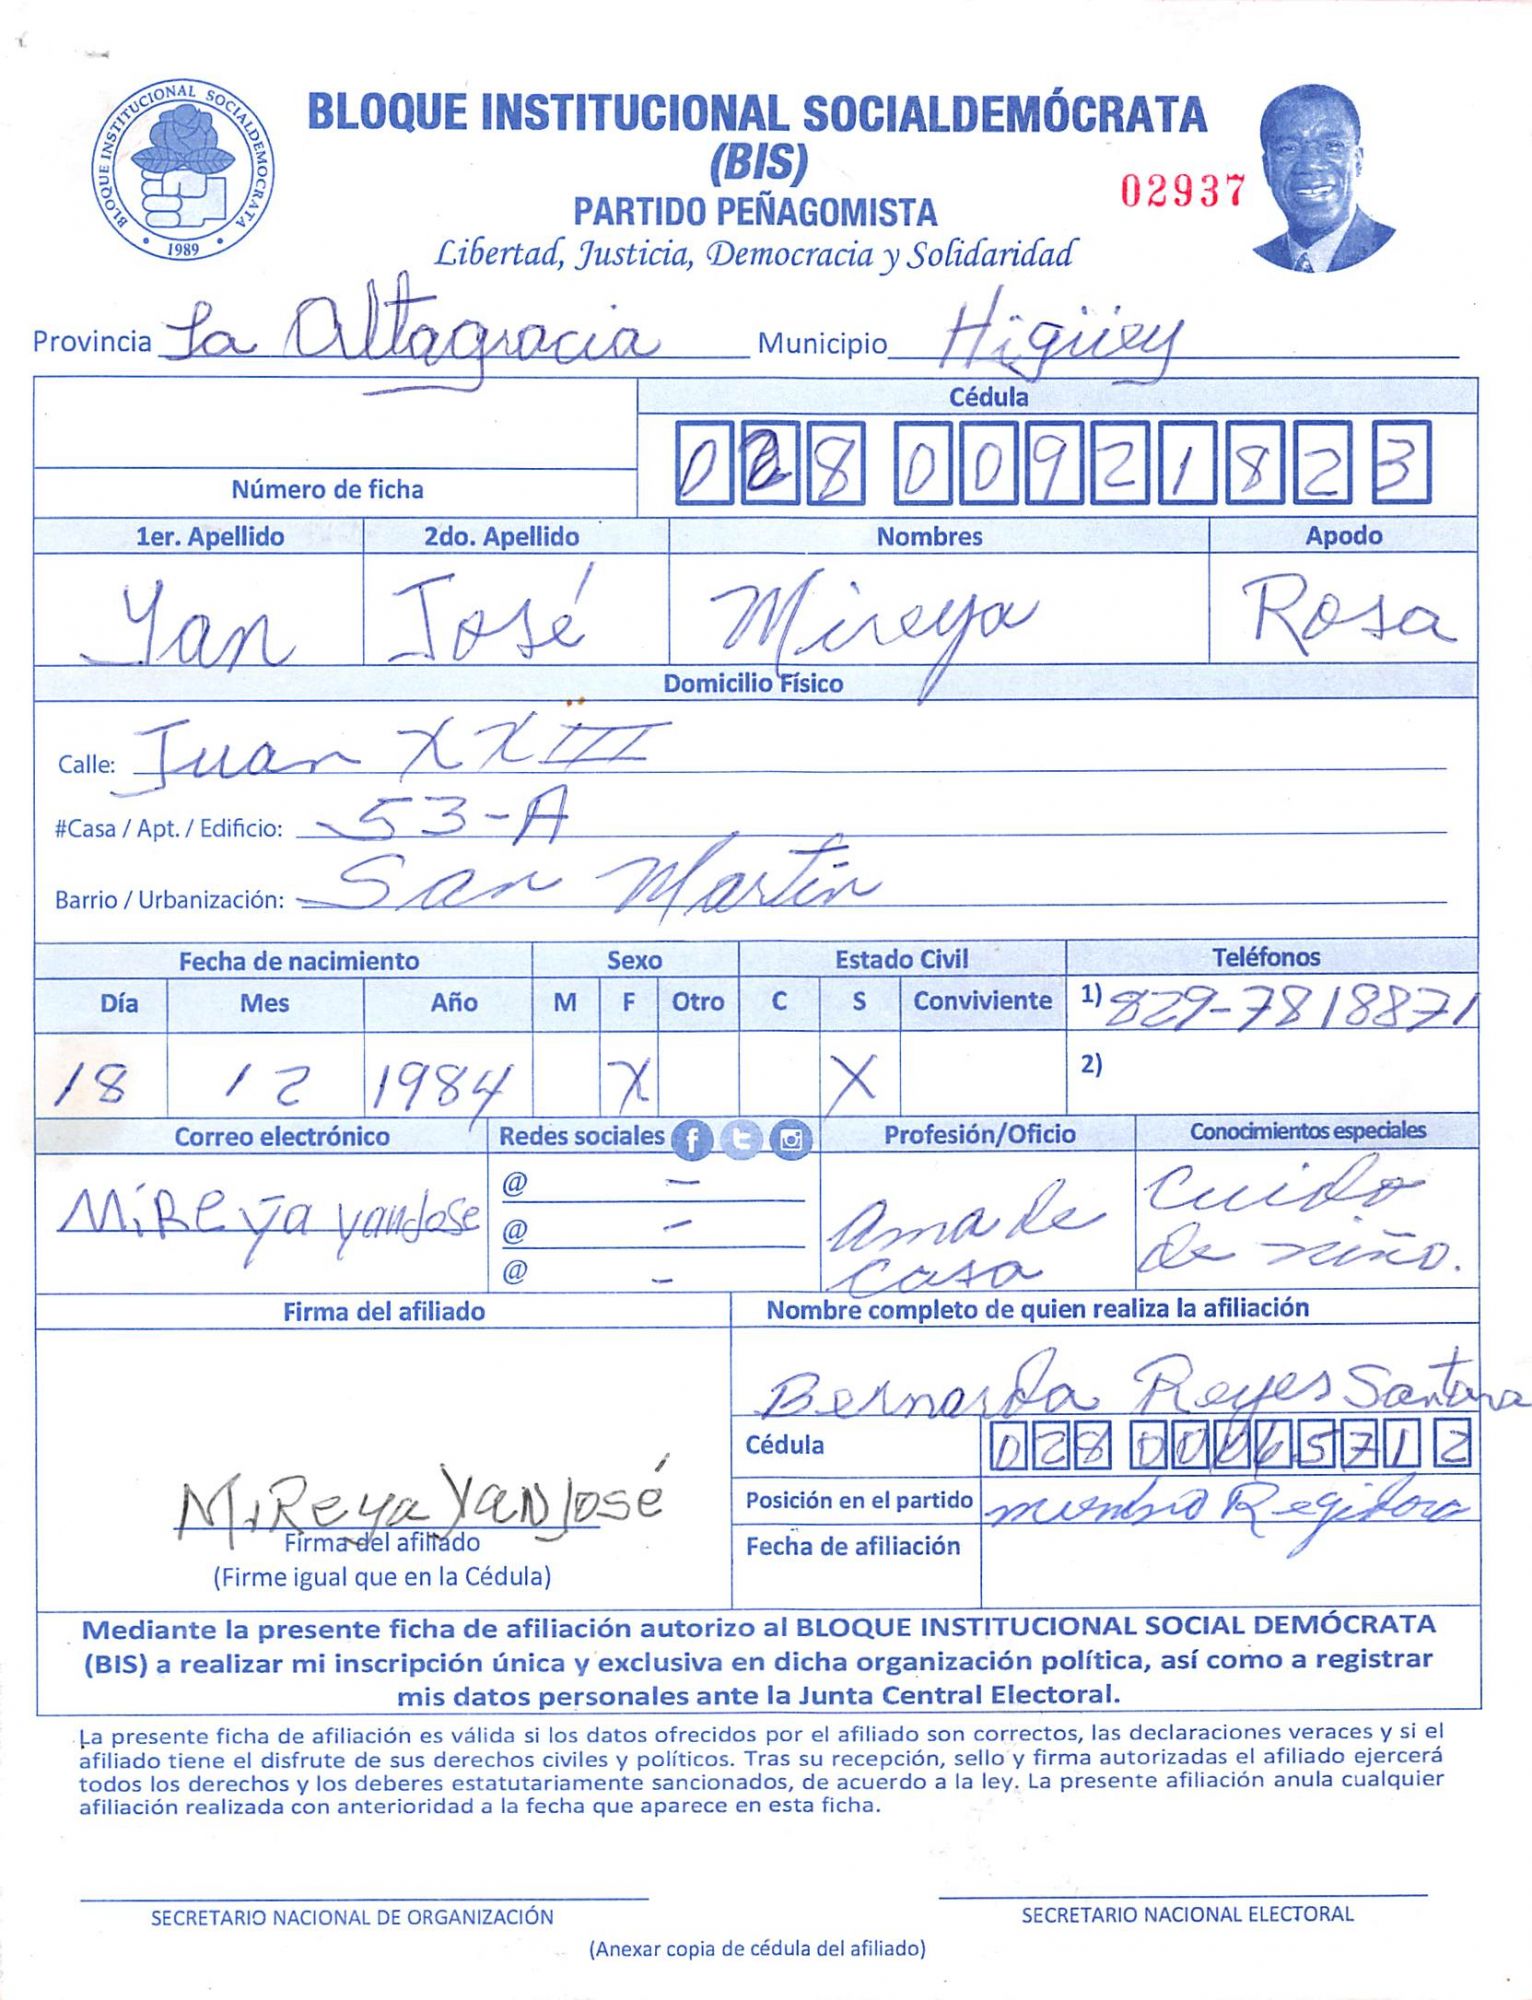 BLOQUE INSTITUCIONAL SOCIALDEMÓCRATA
(BIS)
PARTIDO PEÑAGOMISTA
Libertad, Justicia, Democracia y Solidaridad
02937
BLOQUE INSTITUCIONAL SOCIALDEMOCRATA
1989
Provincia La Altagracia Municipio Higüey
Cédula
028 0092182 3
Número de ficha
1er. Apellido 2do. Apellido Nombres Apodo
Yan José Mireya Rosa
Domicilio Físico
Calle: Juan XXIII
#Casa / Apt. / Edificio: 53-A
Barrio / Urbanización: San Martín
Fecha de nacimiento Sexo Estado Civil Teléfonos
Día Mes Año M F Otro C S Conviviente 1) 829-7818871
18 12 1984 X X 2)
Correo electrónico Redes sociales Profesión/Oficio Conocimientos especiales
MiReya yanJose @ - Ama de Cuido
@ - Casa de niño.
@ -
Firma del afiliado Nombre completo de quien realiza la afiliación
Bernarda Reyes Santana
Cédula 028 0006571 2
MiReya YanJosé Posición en el partido miembro Regidora
Firma del afiliado Fecha de afiliación
(Firme igual que en la Cédula)
Mediante la presente ficha de afiliación autorizo al BLOQUE INSTITUCIONAL SOCIAL DEMÓCRATA
(BIS) a realizar mi inscripción única y exclusiva en dicha organización política, así como a registrar
mis datos personales ante la Junta Central Electoral.
La presente ficha de afiliación es válida si los datos ofrecidos por el afiliado son correctos, las declaraciones veraces y si el
afiliado tiene el disfrute de sus derechos civiles y políticos. Tras su recepción, sello y firma autorizadas el afiliado ejercerá
todos los derechos y los deberes estatutariamente sancionados, de acuerdo a la ley. La presente afiliación anula cualquier
afiliación realizada con anterioridad a la fecha que aparece en esta ficha.
SECRETARIO NACIONAL DE ORGANIZACIÓN SECRETARIO NACIONAL ELECTORAL
(Anexar copia de cédula del afiliado)